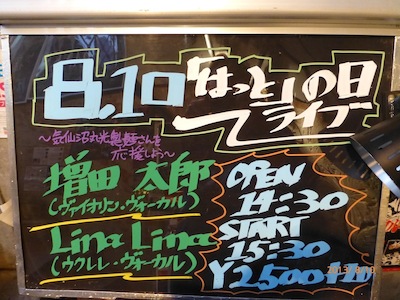 8.10「はっと」の日
ライブ
〜気仙沼丸光製麺さんを
応援しよう〜
増田 太郎
(ヴァイオリン・ヴォーカル)
Lina Lina
(ウクレレ・ヴォーカル)
OPEN
14:30
START
15:30
¥2500